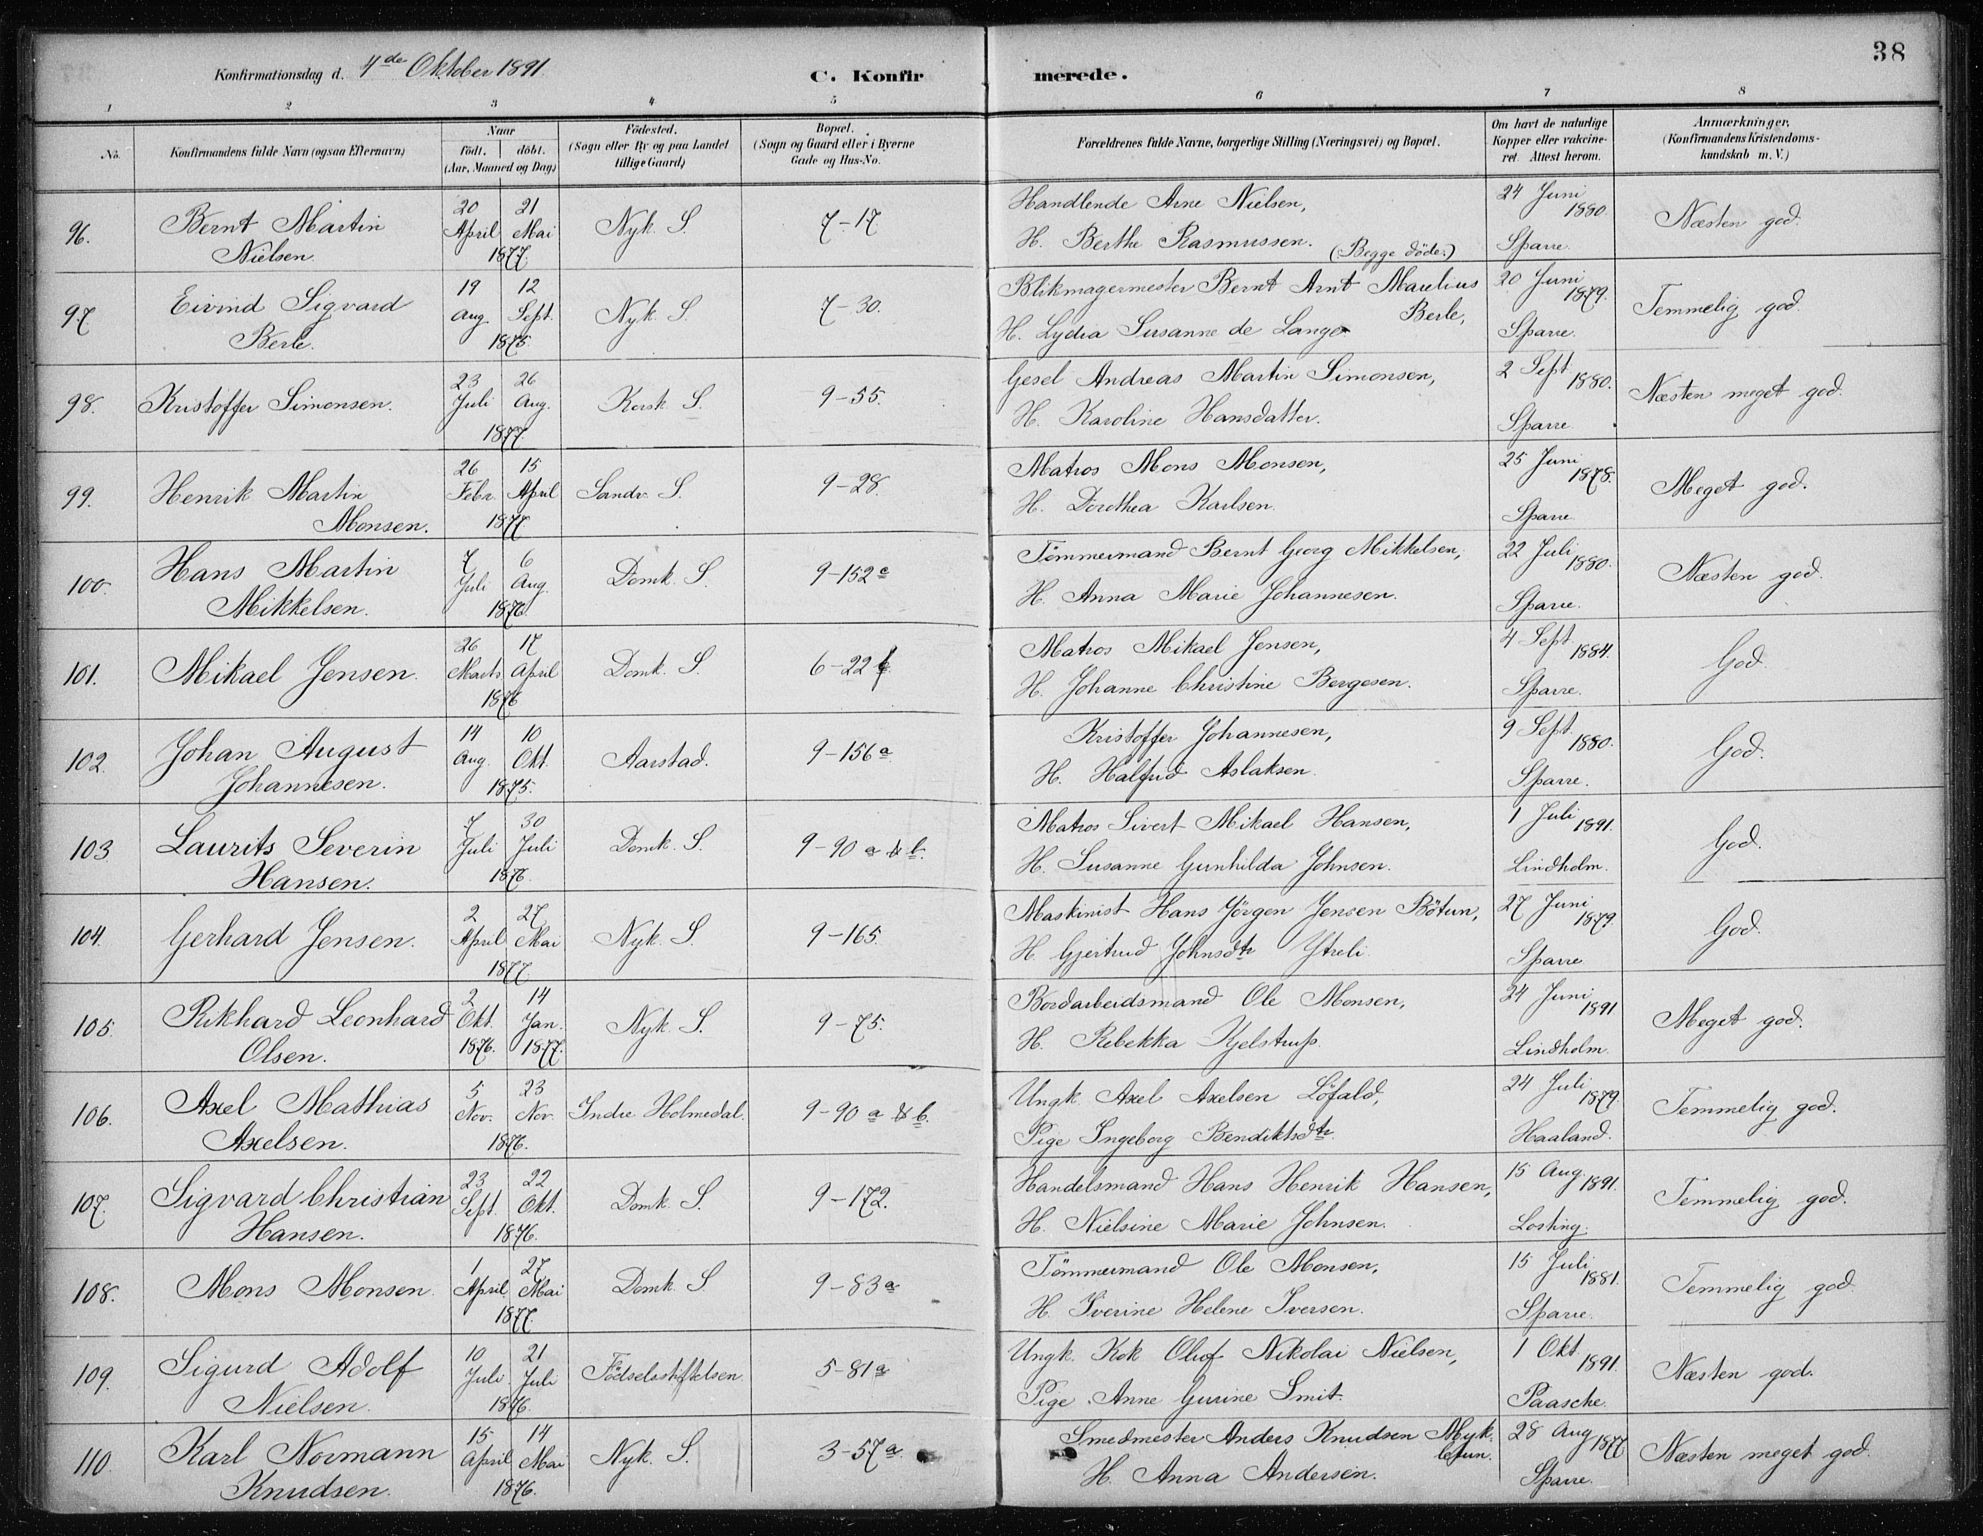 38
Konfirmationsdag d. 4de Oktober 1891
C. Konfirmerede.
1 2 3 4 5 6 7 8
No.
Konfirmandens fulde Navn (ogsaa Efternavn)
Naar
födt. döbt.
(Aar, Maaned og Dag)
Födested.
(Sogn eller By og paa Landet
tillige Gaard)
Bopæl.
(Sogn og Gaard eller i Byerne
Gade og Hus-No.
Forældrenes fulde Navne, borgerlige Stilling (Næringsvei) og Bopæl.
Om havt de naturlige
Kopper eller vakcine-
ret Attest herom.
Anmærkninger.
(Konfirmandens Kristendoms-
kundskab m. V.)
96. Bernt Martin Nielsen. 20 April 21 Mai 1877. Nyk. S. 7-17
Handlende Arne Nielsen,
H. Berthe Rasmussen. (Begge döde.)
24 Juni 1880. Sparre. Næsten god.
97. Eivind Sigvard Berle. 19 Aug. 12 Sept. 1875. Nyk. S. 7-30.
Blikmagermester Bernt Arnt Marelius Berle,
H. Lydia Susanne de Lange
20 Juni 1879. Sparre. Temmelig god.
98. Kristoffer Simonsen. 23 Juli 26 Aug. 1877. Korsk. S. 9-55.
Gesel Andreas Martin Simonsen,
H. Karoline Hansdatter.
2 Sept. 1880. Sparre. Næsten meget god.
99. Henrik Martin Monsen. 26 Febr. 15 April 1877. Sandv. S. 9-28.
Matros Mons Monsen,
H. Dorothea Karlsen.
25 Juni 1878. Sparre. Meget god.
100. Hans Martin Mikkelsen. 7 Juli 6 Aug. 1876. Domk. S. 9-152 c
Tömmermand Bernt Georg Mikkelsen,
H. Anna Marie Johannesen.
22 Juli 1880. Sparre. Næsten god.
101. Mikael Jensen. 26 Marts 17 April 1876 Domk. S. 6-22
Matros Mikael Jensen,
H. Johanne Christine Bergesen.
4 Sept 1884. Sparre. God.
102. Johan August Johannesen. 14 Aug. 10 Okt. 1875. Aarstad. 9-156 a
Kristoffer Johannesen,
H. Halfrid Aslaksen.
9 Sept. 1880. Sparre. God.
103 Laurits Severin Hansen. 7 Juli 30 Juli 1876. Domk. S. 9-90 a & b.
Matros Sivert Mikael Hansen,
H. Susanne Gunhilda Johnsen.
1 Juli 1891. Lindholm. God.
104. Gerhard Jensen. 2 April 27 Mai 1877. Nyk. S. 9-165.
Maskinist Hans Jörgen Jensen Bötun,
H. Gjertrud Johnsdtr Ytreli.
27 Juni 1879. Sparre God.
105 Rikhard Leonhard Olsen. 2 Okt. 1876. 14 Jan. 1877. Nyk. S. 9-75.
Bordarbeidsmand Ole Monsen,
H. Rebekka Kjelstrup.
24 Juni 1891 Lindholm. Meget god.
106. Axel Mathias Axelsen. 5 Nov. 23 Nov. 1876. Indre Holmedal. 9-90 a & b.
Ungk. Axel Axelsen Löfald,
Pige Ingeborg Bendiktsdtr.
24 Juli 1879 Haaland. Temmelig god.
107. Sigvard Christian Hansen. 23 Sept. 22 Okt. 1876. Domk. S. 9-172.
Handelsmand Hans Henrik Hansen,
H. Nielsine Marie Johnsen.
15 Aug. 1891. Losting. Temmelig god.
108. Mons Monsen. 1 April 27 Mai 1877. Domk. S. 9-83 a
Tömmermand Ole Monsen,
H. Iverine Helene Iversen.
15 Juli 1881. Sparre. Temmelig god.
109. Sigurd Adolf Nielsen. 10 Juli 21 Juli 1876. Födselsstiftelsen. 5-81 a
Ungk. Kok Olof Nikolai Nielsen,
Pige Anne Gurine Smit.
1 Okt. 1891. Paasche. Næsten god.
110. Karl Normann Knudsen. 15 April 14 Mai 1876. Nyk. S. 3-57 a.
Smedmester Anders Knudsen Myklebun.
H. Anna Andersen.
28 Aug 1877 Sparre. Næsten meget god.